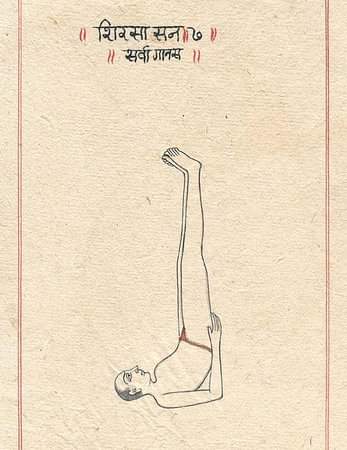 ॥ शिरसा सन ७ ॥
॥ सर्वा गानस ॥